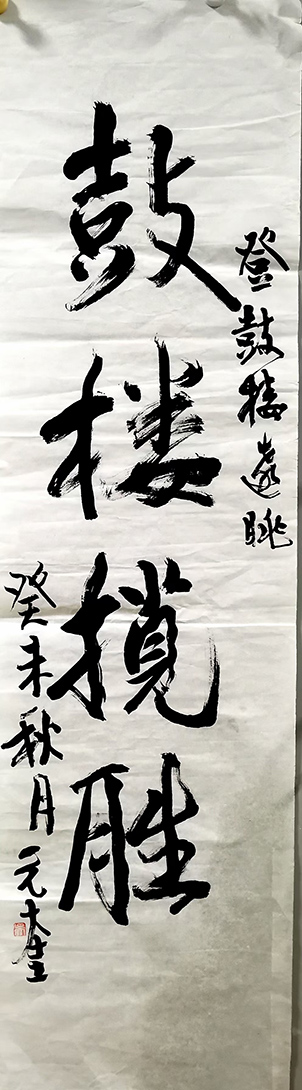 登鼓楼遠眺
鼓楼揽胜
癸未秋月元奎